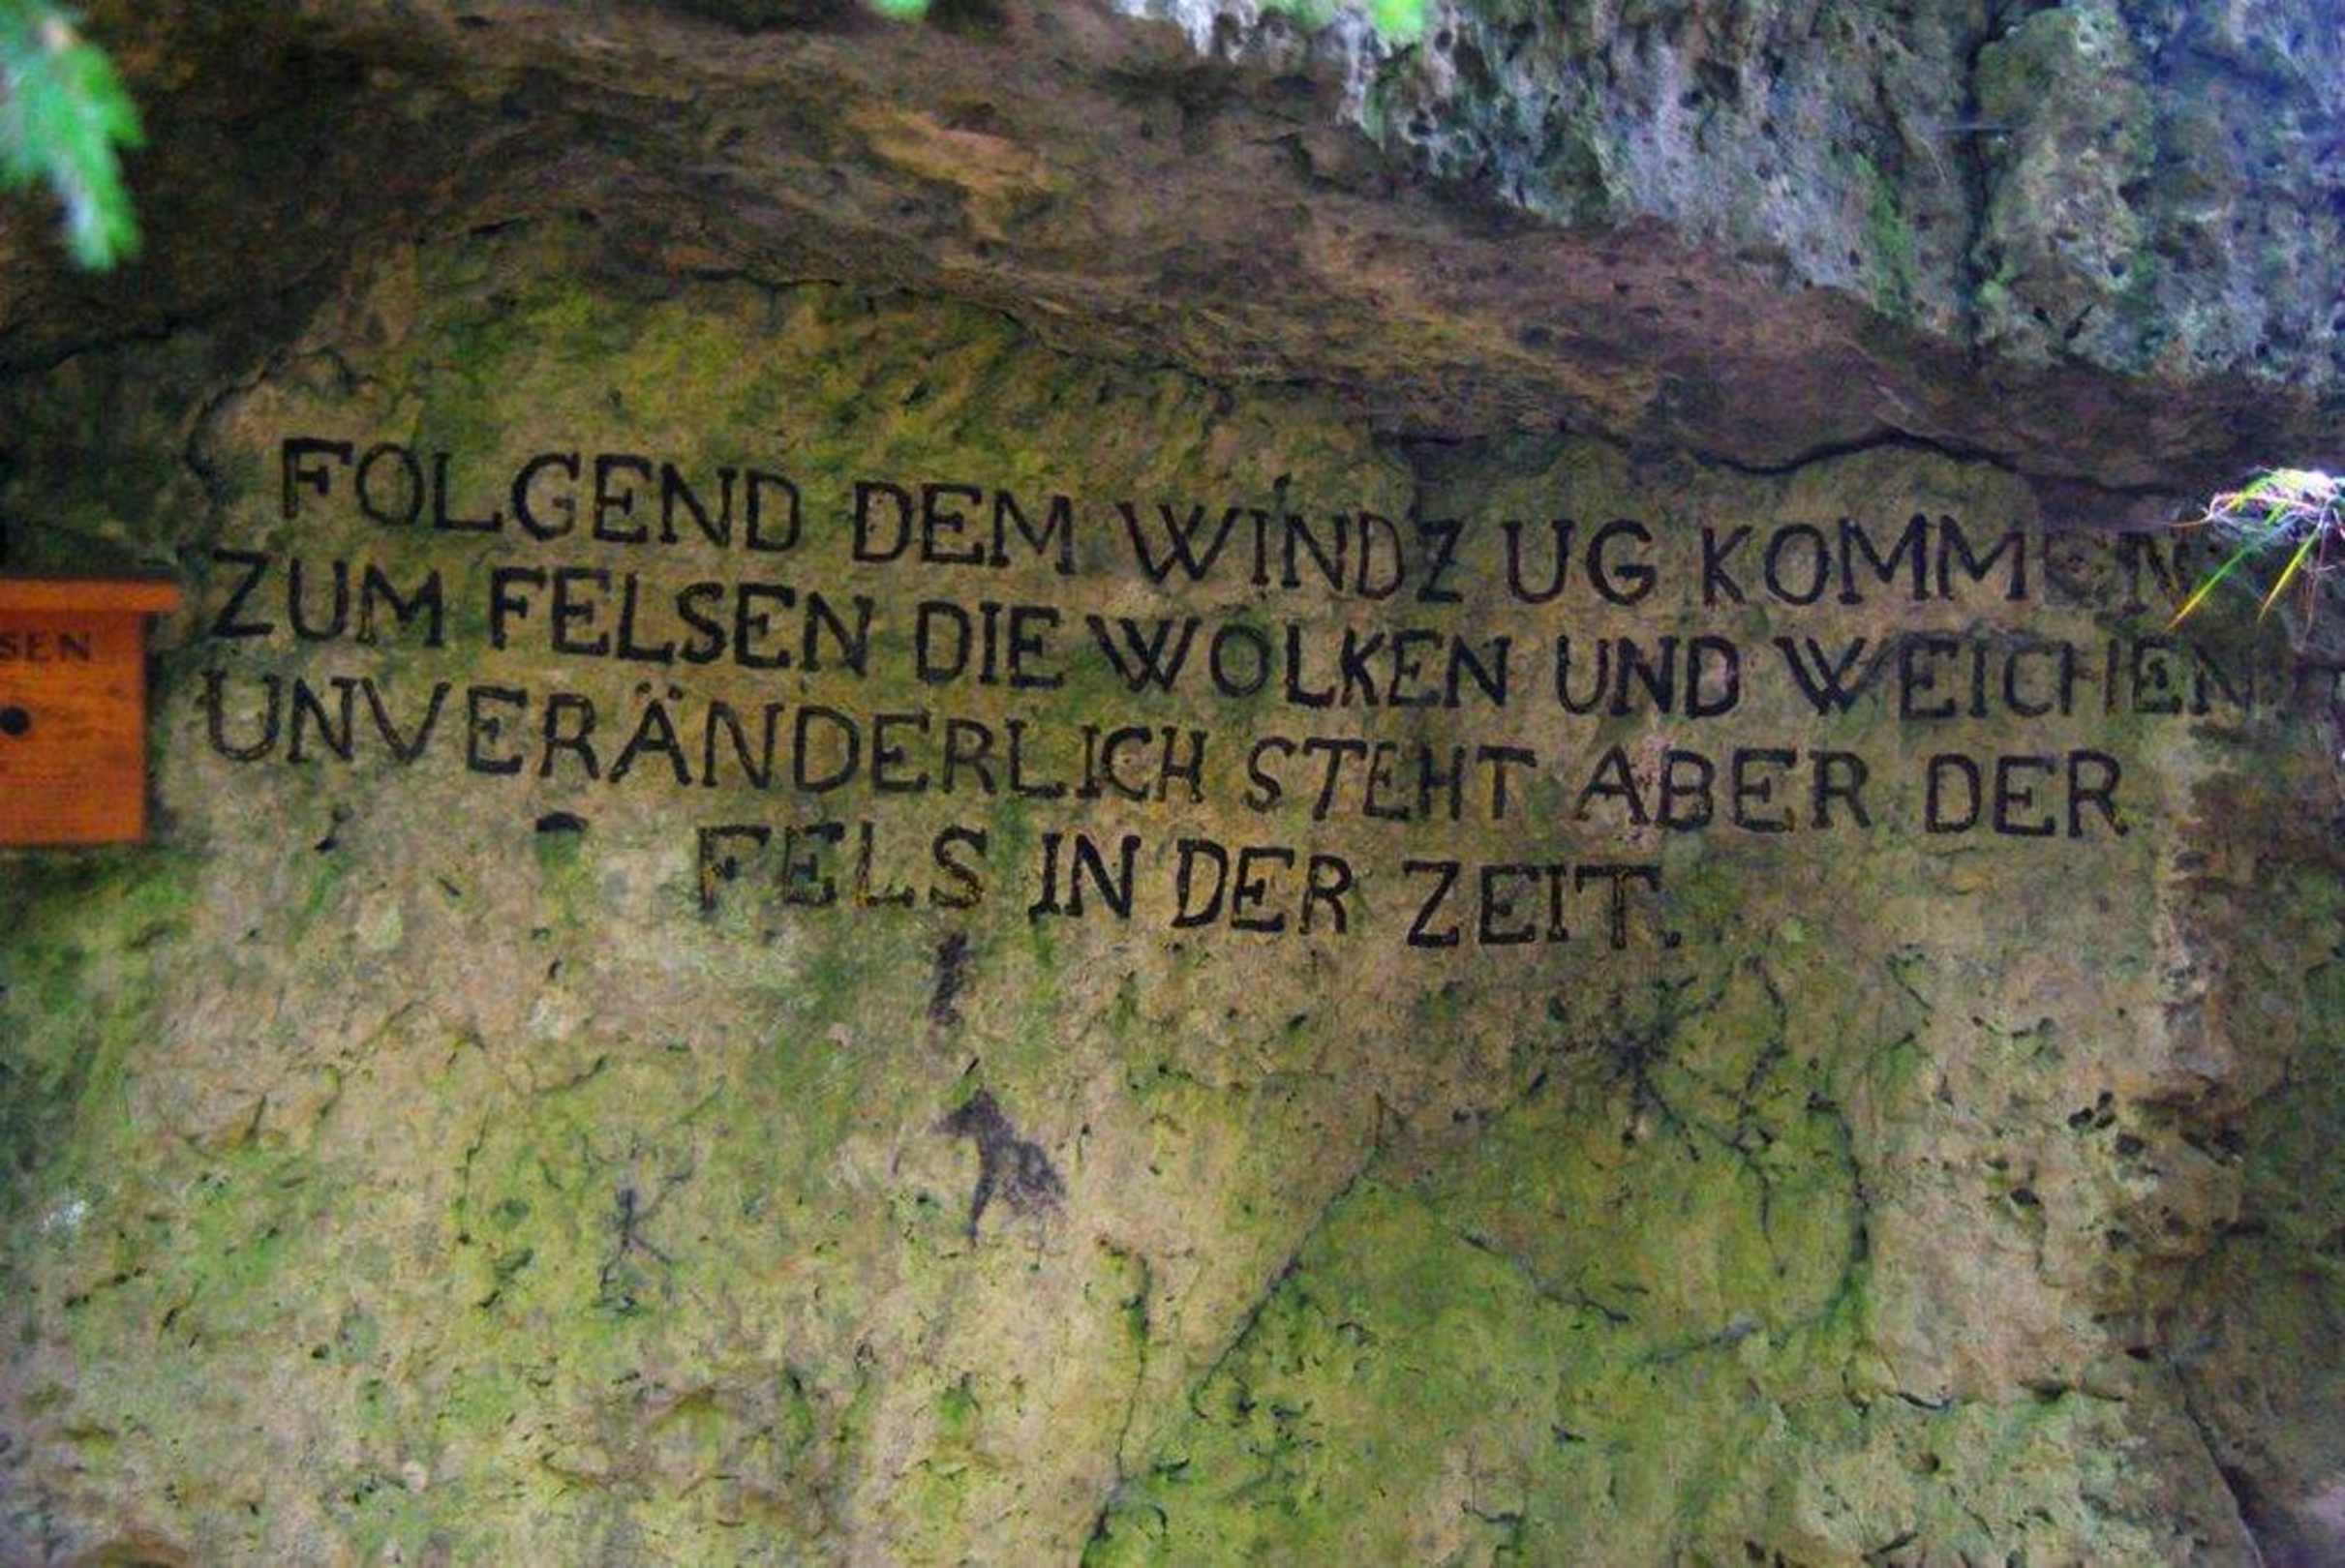 FOLGEND DEM WINDZUG KOMMEN
ZUM FELSEN DIE WOLKEN UND WEICHEN.
UNVERÄNDERLICH STEHT ABER DER
FELS IN DER ZEIT.
SEN